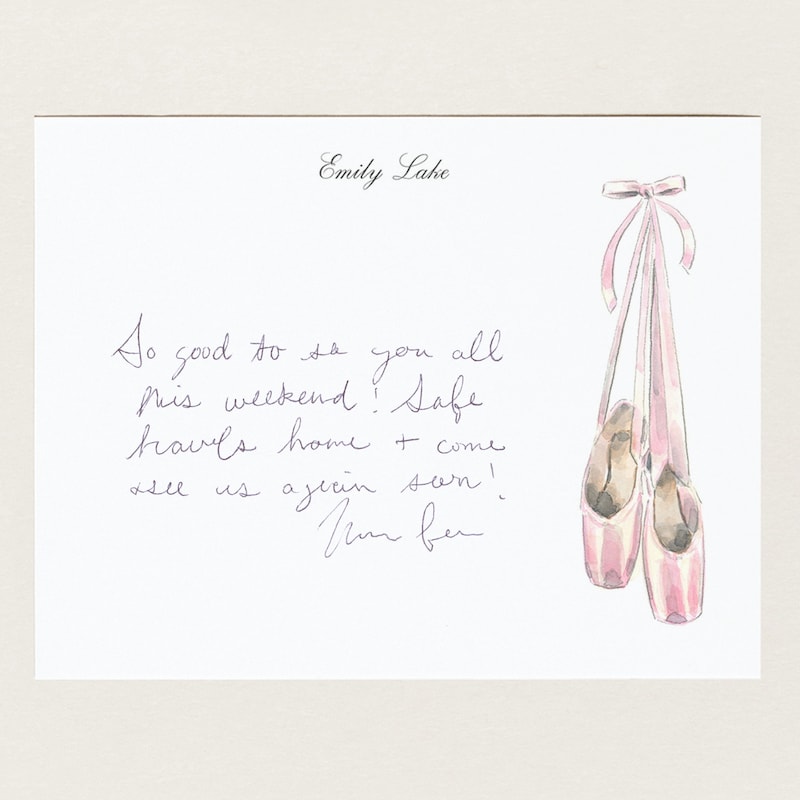 Emily Lake
So good to see you all
this weekend! Safe
travels home + come
see us again soon!